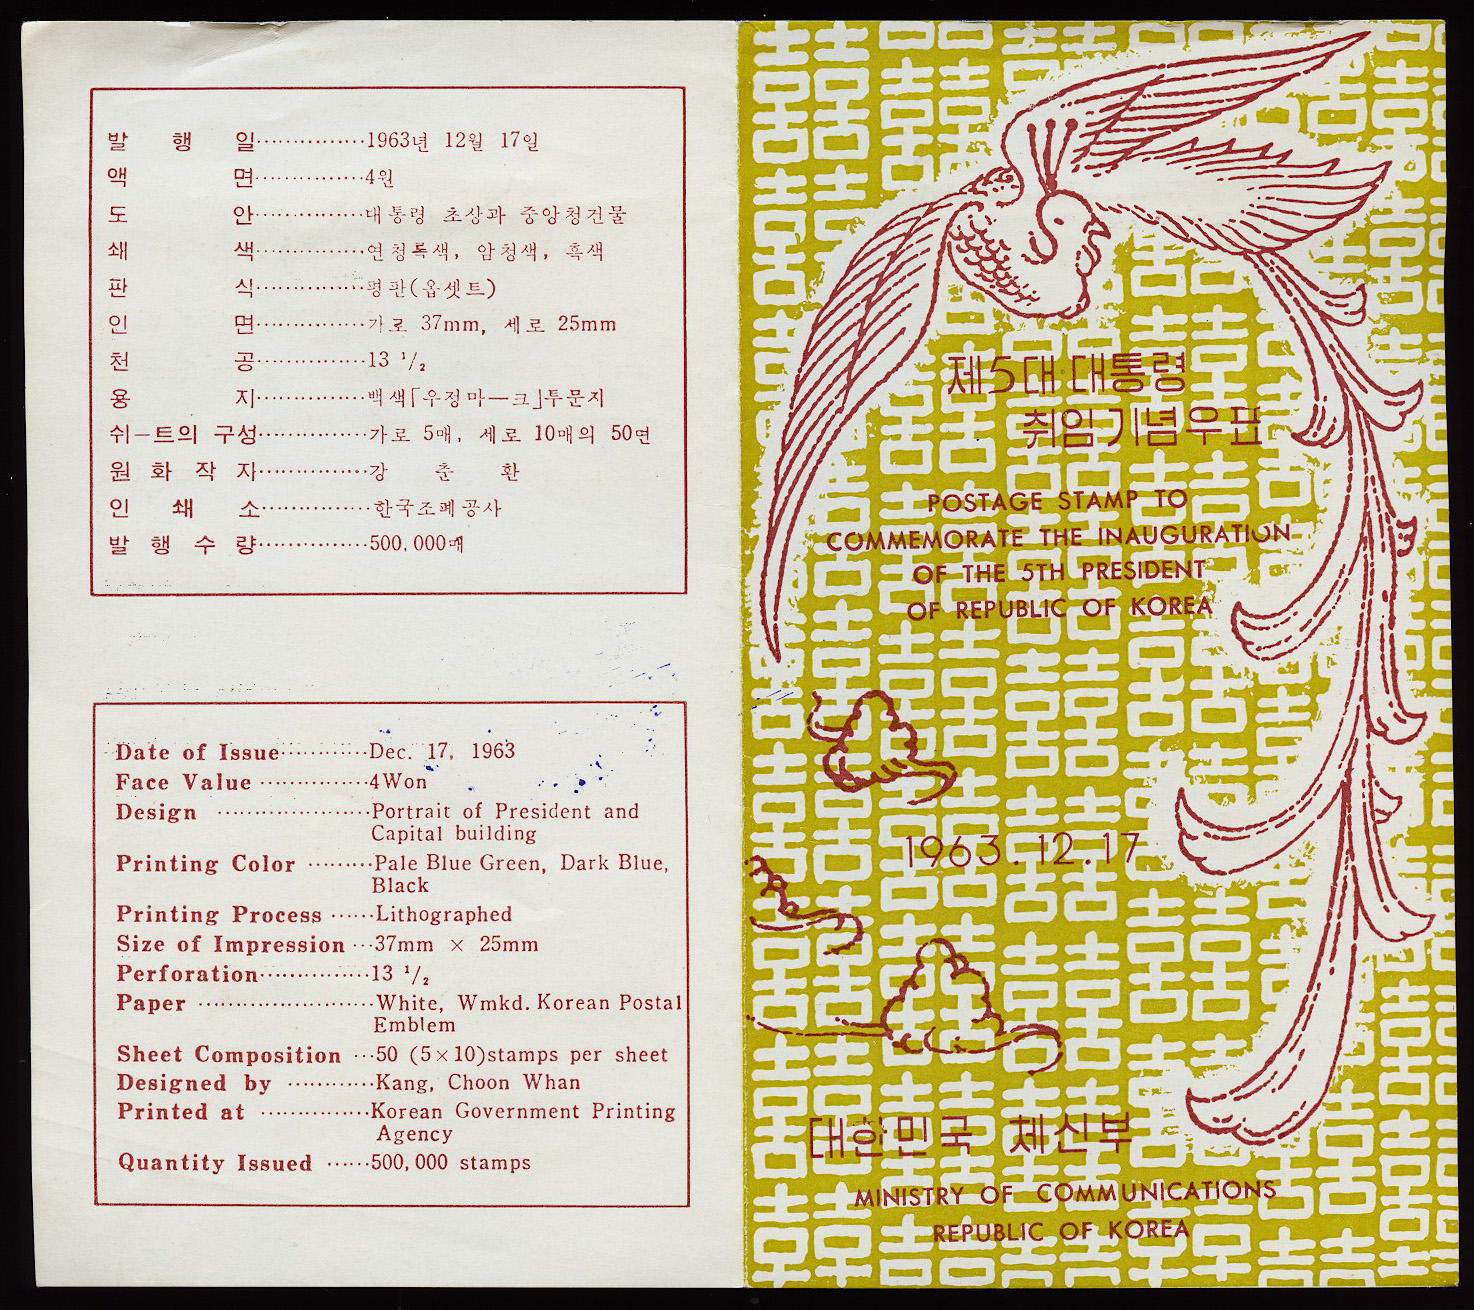 발 행 일……………1963년 12월 17일
액 면……………4원
도 안……………대통령 초상과 중앙청건물
쇄 색……………연청록색, 암청색, 흑색
판 식……………평판(옵셋트)
인 면……………가로 37mm, 세로 25mm
천 공……………13 ¹/₂
용 지……………백색「우정마—크」투문지
쉬—트의 구성……………가로 5매, 세로 10매의 50면
원 화 작 자……………강 춘 환
인 쇄 소……………한국조폐공사
발 행 수 량……………500,000매
Date of Issue…………Dec. 17, 1963
Face Value ……………4Won
Design …………………Portrait of President and
Capital building
Printing Color ………Pale Blue Green, Dark Blue,
Black
Printing Process ……Lithographed
Size of Impression …37mm × 25mm
Perforation……………13 ¹/₂
Paper ……………………White, Wmkd. Korean Postal
Emblem
Sheet Composition …50 (5×10)stamps per sheet
Designed by …………Kang, Choon Whan
Printed at ……………Korean Government Printing
Agency
Quantity Issued ……500,000 stamps
제5대 대통령
취임기념우표
POSTAGE STAMP TO
COMMEMORATE THE INAUGURATION
OF THE 5TH PRESIDENT
OF REPUBLIC OF KOREA
1963.12.17
대한민국 체신부
MINISTRY OF COMMUNICATIONS
REPUBLIC OF KOREA